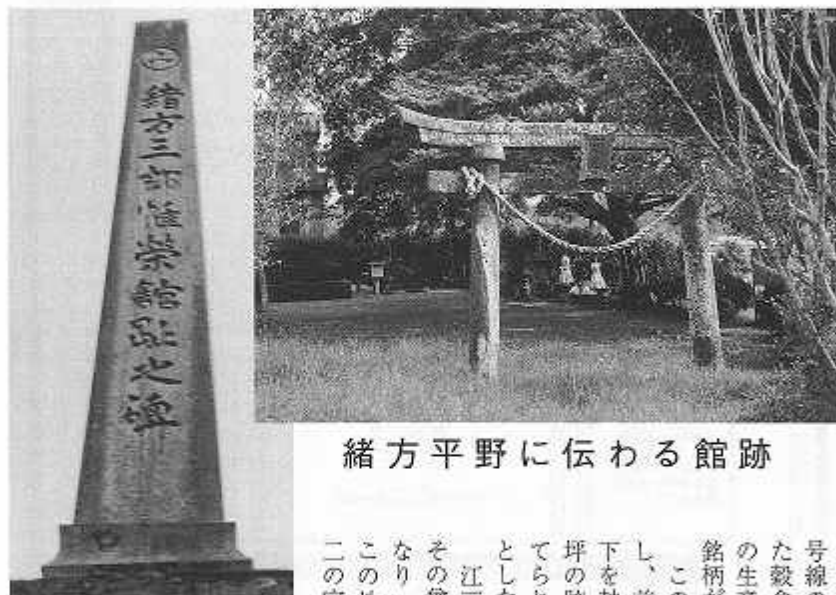 緒方三郎惟榮館趾之碑
緒方平野に伝わる館跡
号線の
た穀倉
の生産
銘柄が
この
し、
下を
坪の
てられ
とした
江戸
その
なり
この
二の宮